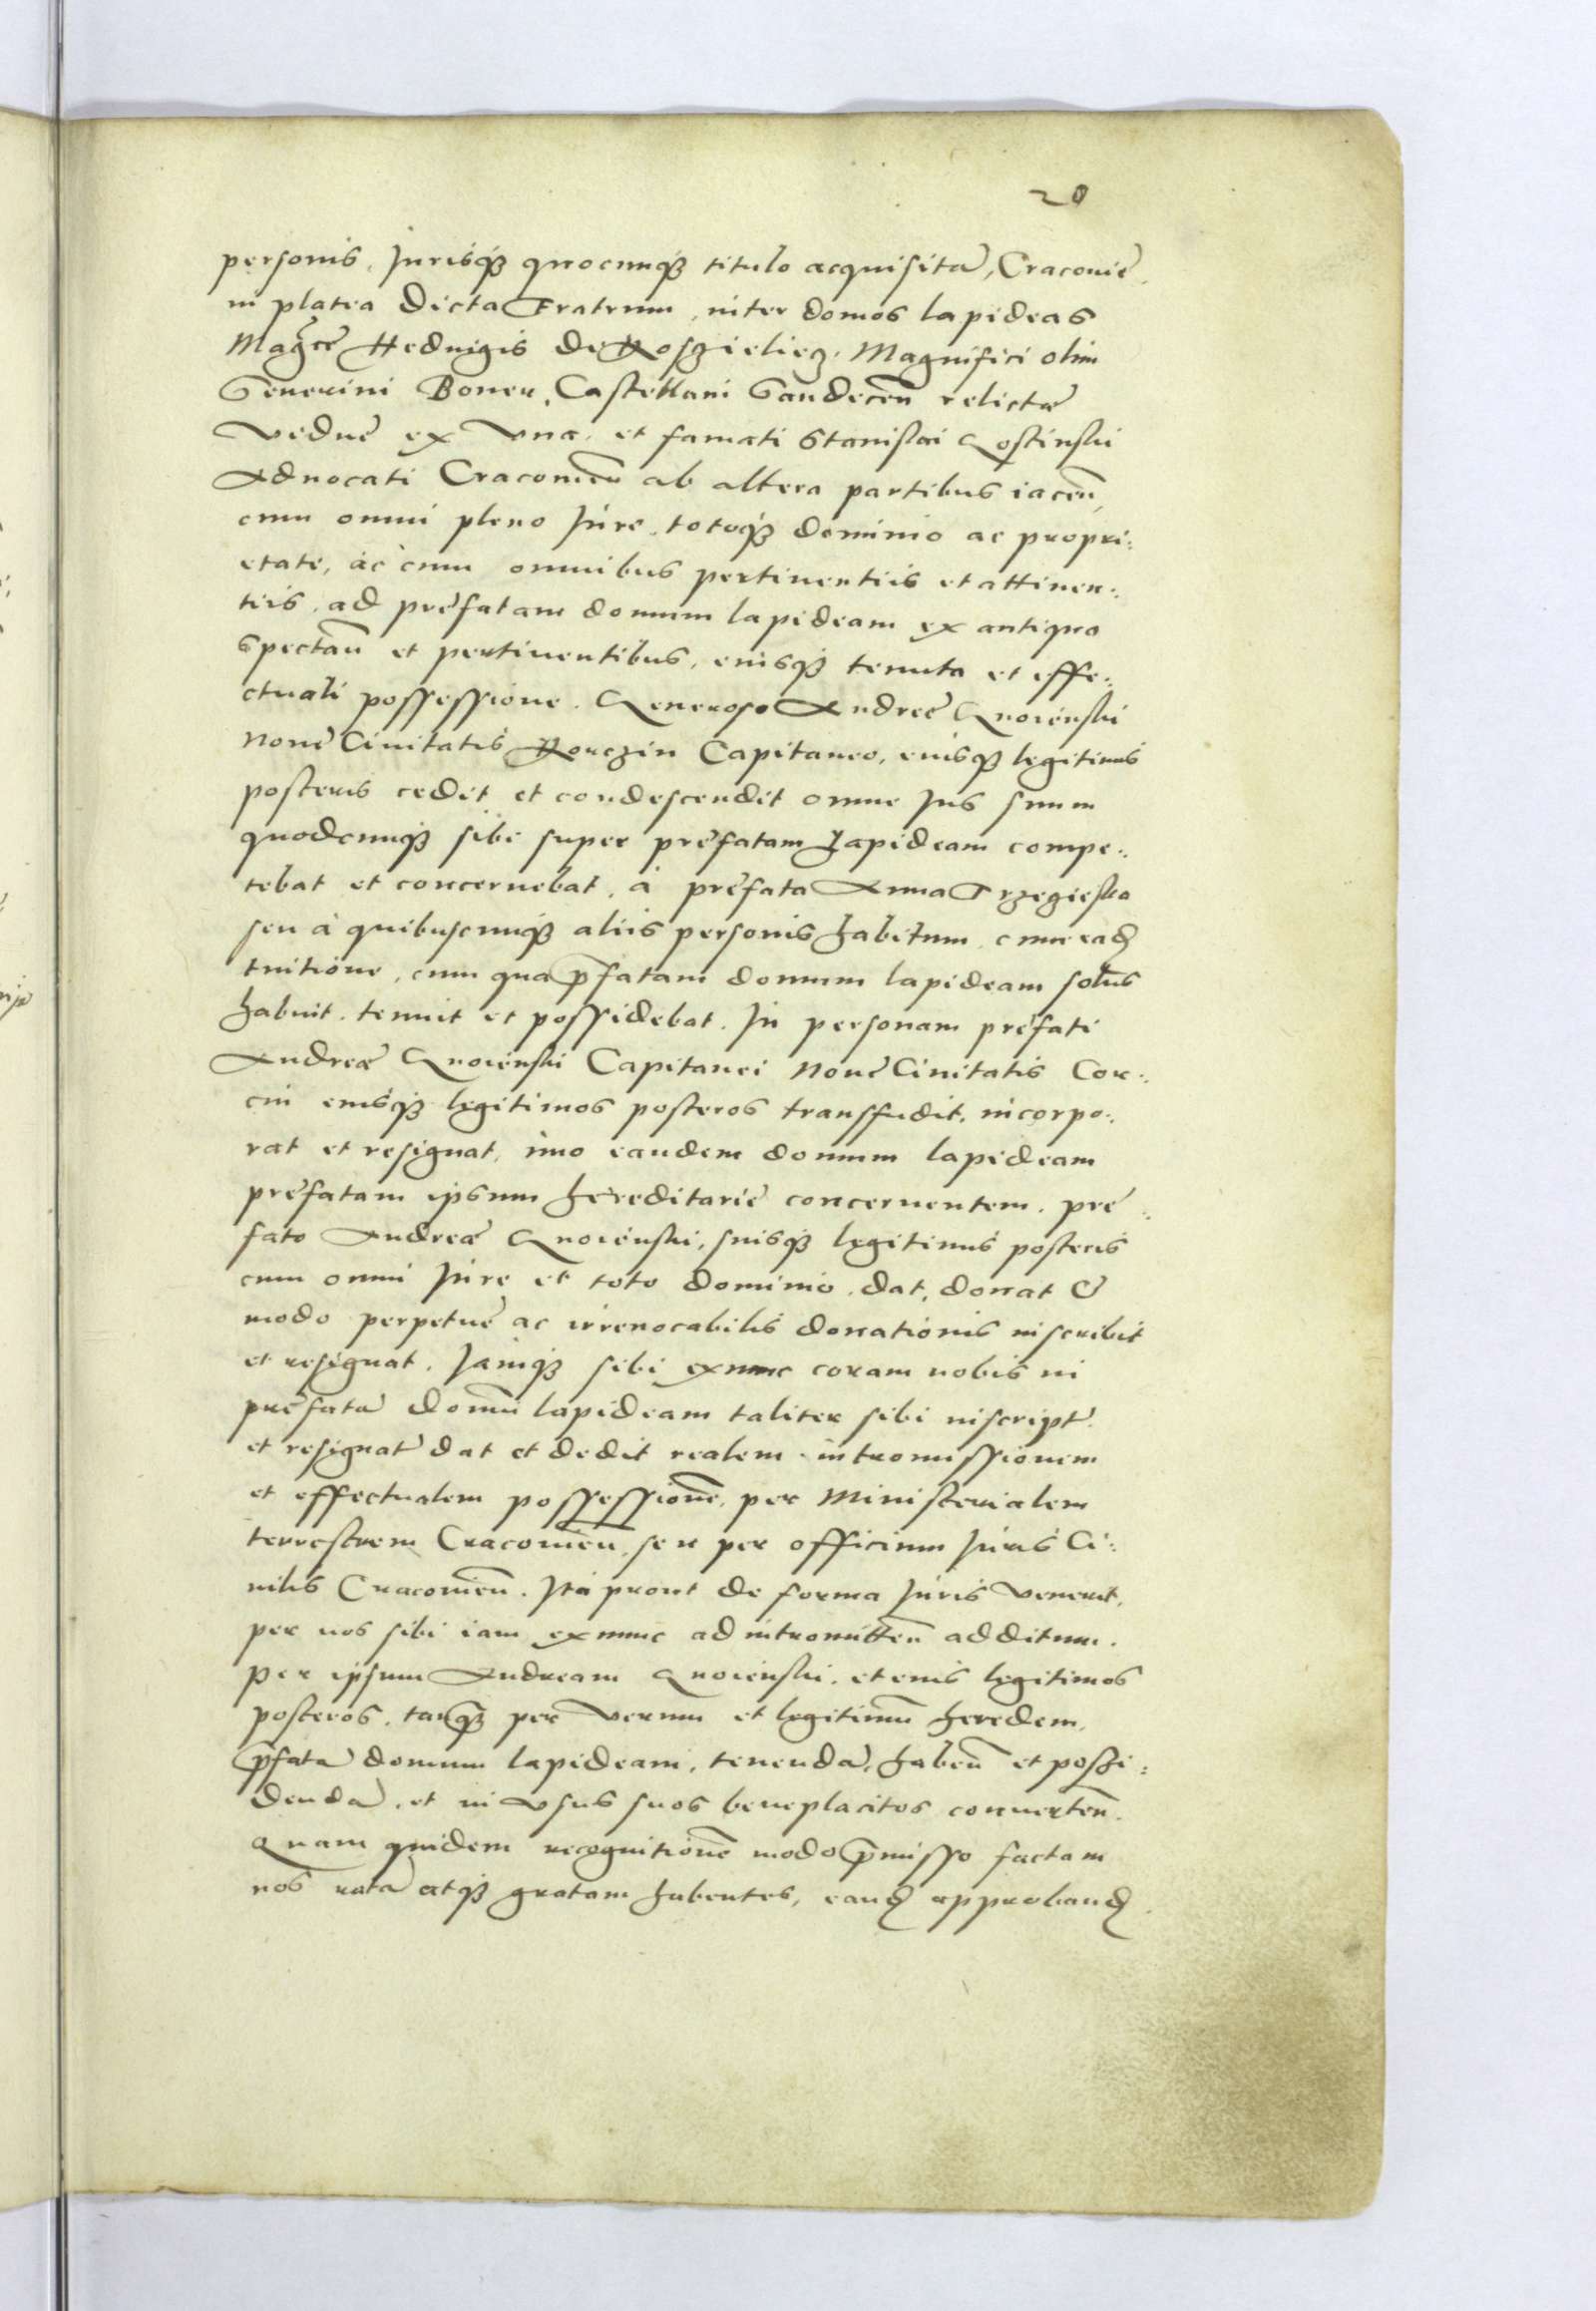 20
personis, Jurisq₃ quocunq₃ titulo acquisitā, Cracovię
in platea dicta Fratrum, inter domos lapideas
Mag̃cę Hedvigis de Koszieliecz, Magnifici olim
Severini Boner, Castellani Sandeceñ relictæ
viduę ex vna, et famati Stanislai Gostinski
Aduocati Cracovieñ ab altera partibus iaceñ,
cum omni pleno Jure, totoq₃ dominio ac propri:
etate, ac cum omnibus pertinentiis et attinen:
tiis, ad pręfatam domum lapideam ex antiquo
spectañ et pertinentibus, eiusq₃ tenuta et effe:
ctuali possessione. Generoso Andreę Gnoienski
Nouę Ciuitatis Korczin Capitaneo, eiusq₃ legitimis
posteris cedit et condescendit omne Jus suum
quodcunq₃ sibi super pręfatam lapideam compe:
tebat et concernebat, à pręfata Anna Trzecieska
seu à quibuscunq₃ aliis personis habitum, cum eaḍ
tuitione, cum qua p̄fatam domum lapideam solus
habuit, tenuit et possidebat. In personam pręfati
Andreæ Gnoienski Capitanei Nouę Ciuitatis Cor:
cin eiusq₃ legitimos posteros transfudit, incorpo:
rat et resignat, imo eandem domum lapideam
pręfatam ipsum hęreditarię concernentem, prę
fato Andreæ Gnoienski, suisq₃ legitimis posteris
cum omni Jure et toto dominio, dat, donat &
modo perpetuę ac irreuocabilis donationis inscribit
et resignat. Jamq₃ sibi exnunc coram nobis in
pręfatā domū lapideam taliter sibi inscriptā
et resignatā dat et dedit realem intromissionem
et effectualem possessionē, per Ministerialem
terrestrem Cracovieñ, seu per officium Juris Ci:
uilis Cracovieñ. Ita prout de forma Juris venerit,
per nos sibi iam exnunc ad intromitteñ additum.
Per ipsum Andream Gnoienski, et eius legitimos
posteros, tanq̄₃ per verum et legitimū heredem,
p̄fatā domum lapideam, tenendā, habeñ et possi:
dendā, et in vsus suos beneplacitos conuerteñ.
Quam quidem recognitionē modo p̄misso factam
nos ratā atq₃ gratam habentes, eanḍ approbanḍ